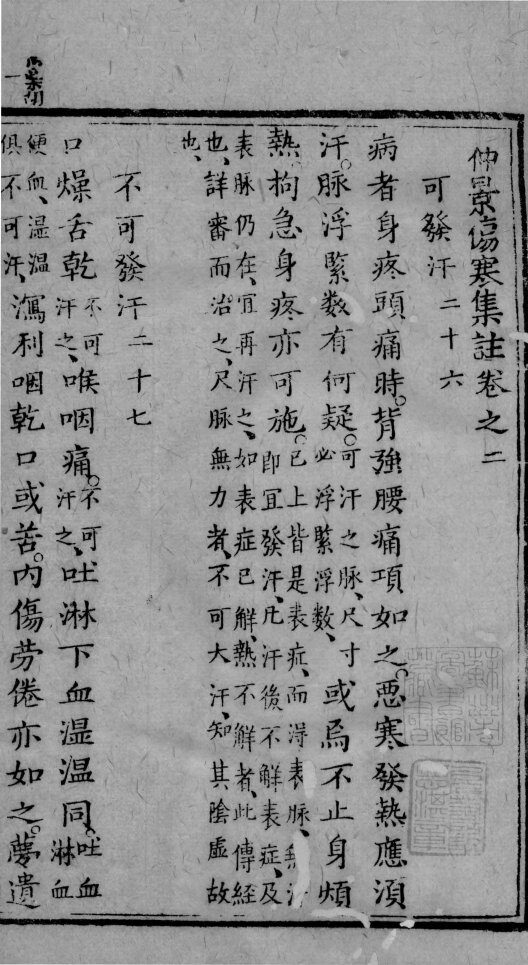 仲景傷寒集註卷之二
可發汗二十六
病者身疼頭痛時。背強腰痛項如之。惡寒發熱應須
汗。脉浮緊数有何疑。可汗之脉、尺寸必浮緊浮数、或烏不止身煩
熱。拘急身疼亦可施。已上皆是表症、而得表脉、無汗即宜發汗、凡汗後不解表症、及
表脉仍在、宜再汗之、如表症已解、熱不解者、此傳経
也、詳審而治之、尺脉無力者、不可大汗、知其陰虚故
也、
不可發汗二十七
口燥舌乾不可汗之、喉咽痛。不可汗之、吐淋下血湿温同。吐血淋血
便血、湿温俱不可汗、瀉利咽乾口或苦。内傷劳倦亦如之。夢遺